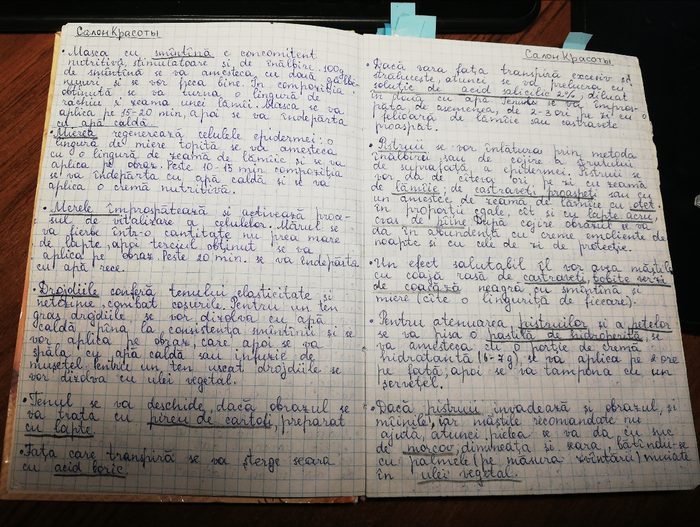 Салон Красоты
• Masca cu smîntînă e concomitent
nutritivă, stimulatoare și de înălbire. 100g
de smîntînă se va amesteca cu două gălbe-
nușuri și se vor freca bine. În compoziția
obținută se va turna o lingură de
rachiu și zeama unei lămîi. Masca se va
aplica pe 15-20 min, apoi se va îndepărta
cu apă caldă.
• Mierea regenerează celulele epidermei: o
lingură de miere topită se va amesteca
cu o lingură de zeamă de lămîie și se va
aplica pe obraz. Peste 10-15 min compoziția
se va îndepărta cu apă caldă și se va
aplica o cremă nutritivă.
• Merele împrospătează și activează proce-
sul de vitalizare a celulelor. Mărul se
va fierbe într-o cantitate nu prea mare
de lapte, apoi terciul obținut se va
aplica pe obraz. Peste 20 min. se va îndepărta
cu apă rece.
• Drojdiile conferă tenului elasticitate și
netezime, combat coșurile. Pentru un ten
gras drojdiile se vor dizolva cu apă
caldă pînă la consistența smîntînii și se
vor aplica pe obraz, care apoi se va
spăla cu apă caldă sau infuzie de
mușețel. Pentru un ten uscat drojdiile se
vor dizolva cu ulei vegetal.
• Tenul se va deschide, dacă obrazul se
va trata cu pireu de cartofi, preparat
cu lapte.
• Fața care transpiră se va șterge seara
cu acid boric.
Салон Красоты
• Dacă vara fața transpiră excesiv și
strălucește, atunci se va prelucra cu
soluție de acid salicilic 2% diluat
în două cu apă. Tenul se va împros-
păta, de asemenea, de 2-3 ori pe zi cu o
felioară de lămîie sau castravete
proaspăt.
• Pistruii se vor înlătura prin metoda
înălbirii sau de cojire a stratului
de suprafață a epidermei. Pistruii se
vor da de cîteva ori pe zi cu zeamă
de lămîie, de castraveți proaspeți sau cu
un amestec de zeamă de lămîie cu oțet
în proporții egale, cît și cu lapte acru,
cvas de pîine. După cojire obrazul se va
da în abundență cu creme emoliente de
noapte și cu cele de zi de protecție.
• Un efect salutabil îl vor avea măștile
cu coajă rasă de castraveți, bobițe verzi
de coacăză neagră cu smîntînă și
miere (cîte o linguriță de fiecare).
• Pentru atenuarea pistruilor și a petelor
se va pisa o pastilă de hidroperită, se
va amesteca cu o porție de cremă
hidratantă (6-7g), se va aplica pe
pe față, apoi se va tampona cu un
șervețel.
• Dacă pistruii invadează și obrazul, și
mîinile, iar măștile recomandate nu
ajută, atunci pielea se va da cu suc
de morcov, dimineața și seara, bătîndu-se
cu palmele (pe măsura zvîntării) muiate
în ulei vegetal.